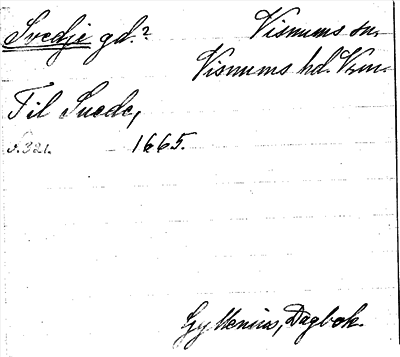 Svedje gd.? Visnums sn.
Visnums hd. Vrm.
Til Suede,
s. 321. 1665.
Gyllenius, Dagbok.